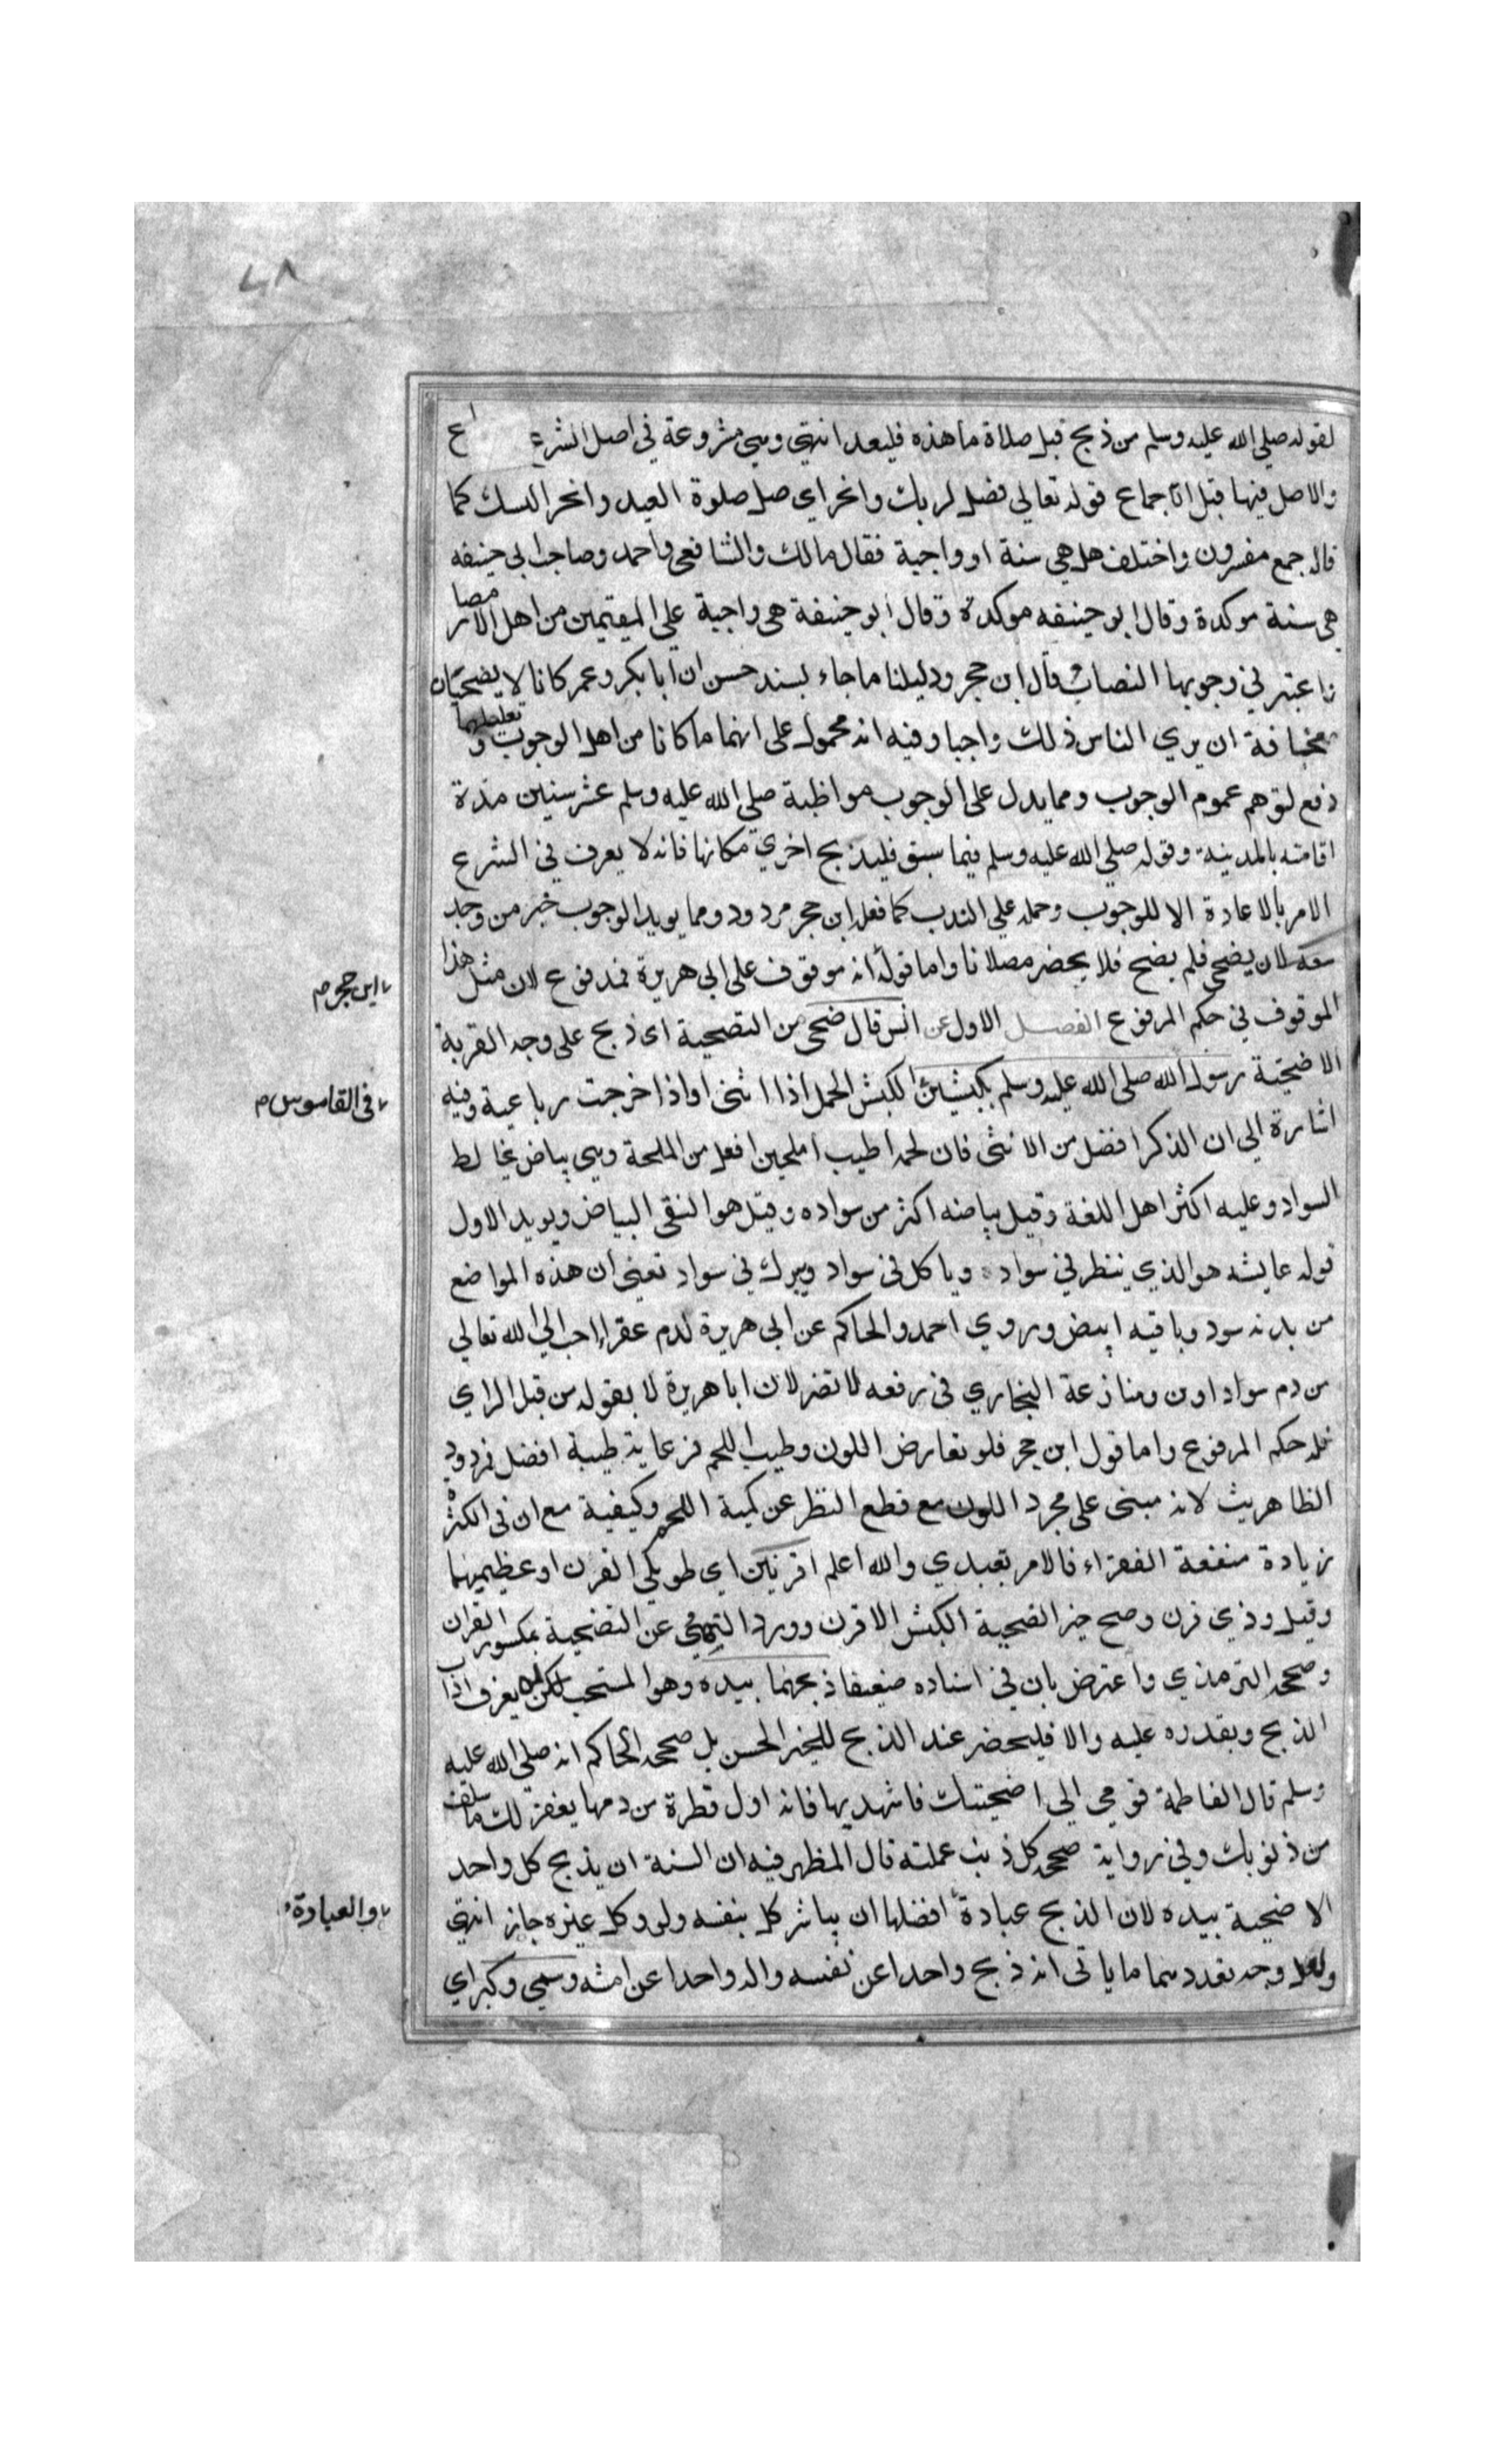 ٤٨
لقوله صلي الله عليه وسلم من ذبح قبل صلاة ما هذه فليعد انتهي وهي مشروعة في اصل الشرع
والاصل فيها قبل الاجماع قوله تعالي فصل لربك وانحر اي صل صلوة العيد وانحر النسك كما
قال جمع مفسرون واختلف هل هي سنة او واجبة فقال مالك والشافعي واحمد وصاحبا ابي حنيفه
هي سنة موكدة وقال ابو حنيفه موكدة وقال ابو حنيفة هي واجبة علي المقيمين من اهل الامصار
واعتبر في وجوبها النصاب قال ابن حجر ودليلنا ما جاء بسند حسن ان ابا بكر وعمر كانا لا يضحيان
مخافة ان يري الناس ذلك واجبا وفيه انه محمول على انهما ما كانا من اهل الوجوب و
دفع لتوهم عموم الوجوب ومما يدل على الوجوب مواظبة صلي الله عليه وسلم عشر سنين مدة
اقامته بالمدينة وقوله صلي الله عليه وسلم فيما سبق فليذبح اخري مكانها فانه لا يعرف في الشرع
الامر بالاعادة الا للوجوب وحمله علي الندب كما فعل ابن حجر مردود ومما يويد الوجوب خبر من وجد
سعة لان يضحي فلم يضح فلا يحضر مصلانا واما قوله انه موقوف على ابي هريرة فمدفوع لان مثل هذا
ابن حجر م
الموقوف في حكم المرفوع الفصل الاول عن انس قال ضحي من التضحية اى ذبح على وجه القربة
الاضحية رسول الله صلى الله عليه وسلم بكبشين الكبش الحمل اذا اثنى او اذا خرجت رباعية وفيه
في القاموس م
اشارة الي ان الذكر افضل من الانثى فان لحمه اطيب املحين افعل من الملحة وهي بياض يخالط
السواد وعليه اكثر اهل اللغة وقيل بياضه اكثر من سواده وقيل هو النقي البياض ويويد الاول
قوله عايشه هو الذي ينظر في سواد وياكل في سواد ويبرك في سواد تعني ان هذه المواضع
من بدنه سود وباقيه ابيض وروي احمد والحاكم عن ابي هريرة لدم عفراء احب الي الله تعالي
من دم سواد اوين ومنازعة البخاري في رفعه لا تضر لان ابا هريرة لا يقوله من قبل الراي
فله حكم المرفوع واما قول ابن حجر فلو تعارض اللون وطيب اللحم فرعاية طيبة افضل فمردود
الظاهريث لانه مبنى على مجرد اللون مع قطع النظر عن كمية اللحم وكيفية مع ان في الكثر
زيادة منفعة الفقراء فالامر تعبدي والله اعلم اقرنين اي طويلي القرن او عظيميهما
وقيل وذي قرن وصح خير الضحية الكبش الاقرن وورد النهي عن التضحية بمكسور القرن
وصححه الترمذي واعترض بان في اسناده ضعيفا ذبحهما بيده وهو المستحب لمن يعرف اداب
الذبح ويقدره عليه والا فليحضر عند الذبح للخبر الحسن بل صححه الحاكم انه صلي الله عليه
وسلم قال لفاطمة قومي الي اضحيتك فاشهديها فانه اول قطرة من دمها يغفر لك ما سلف
من ذنوبك وفي رواية صححه كل ذنب عملته قال المظهر فيه ان السنة ان يذبح كل واحد
الاضحية بيده لان الذبح عبادة افضلها ان يباشر كل بنفسه ولو وكل غيره جاز انتهي
والعبادة
ولعل وجه تعددهما ما ياتى انه ذبح واحدا عن نفسه والد واحدا عن امته وسمي وكبر اي